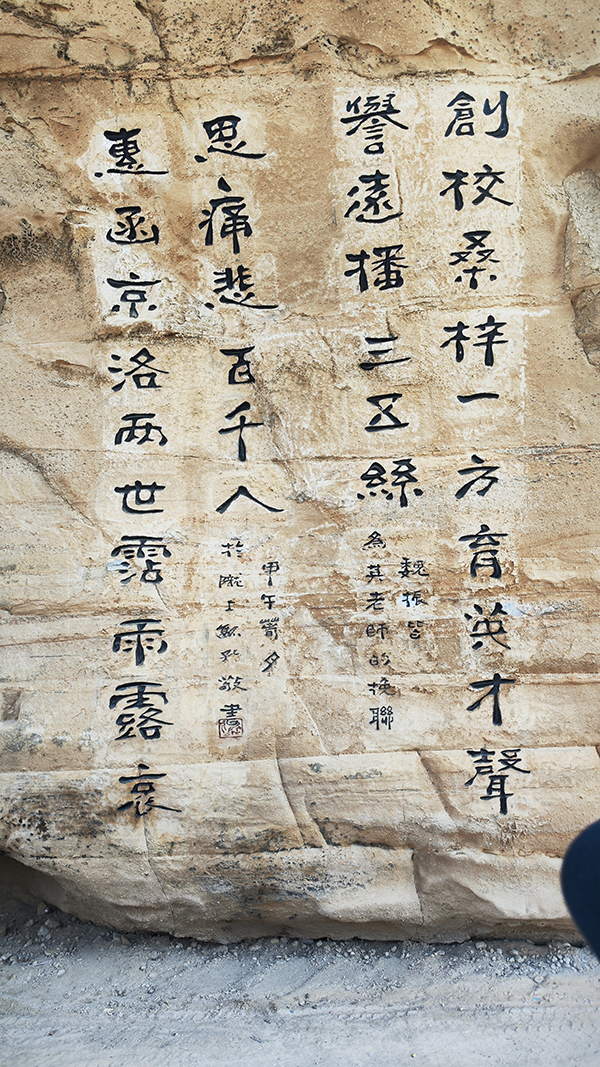 創校桑梓一方育英才聲
譽遠播三五絲
魏振皆
為其老師的挽聯
惠函京洛兩世霑雨露哀
思痛悲百千人
甲午夕
於隴上敬書